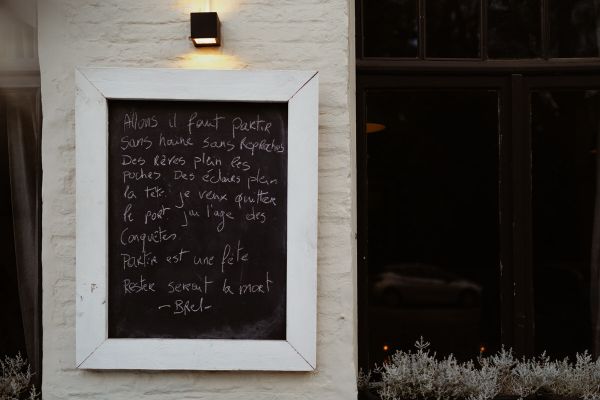 Allons il faut partir
sans haine sans Reproches
Des Rêves plein les
poches. Des éclairs plein
la tête. je veux quitter
le port j'ai l'age des
Conquêtes.
Partir est une fête
Rester serait la mort
- Brel -